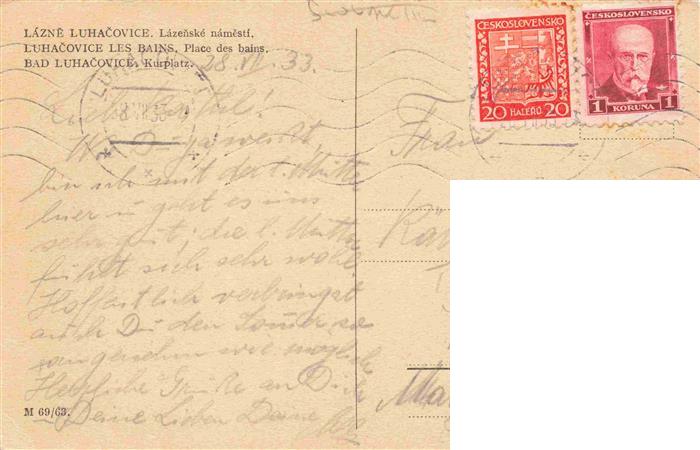 LÁZNĚ LUHAČOVICE. Lázeňské náměstí.
LUHAČOVICE LES BAINS. Place des bains.
BAD LUHAČOVICE. Kurplatz.
28. VII. 33.
ČESKOSLOVENSKO
20 HALÉŘŮ 20
ČESKOSLOVENSKO
1 KORUNA 1
Du ja weißt,
bin ich mit der l. Mutter
hier u geht es uns
sehr gut; die l. Mutter
fühlt sich sehr wohl
Hoffentlich verbringst
auch Du den Sommer so
angenehm wie möglich
Herzliche Grüße an Dich
Deine Lieben Deine
Frau
M 69/63.